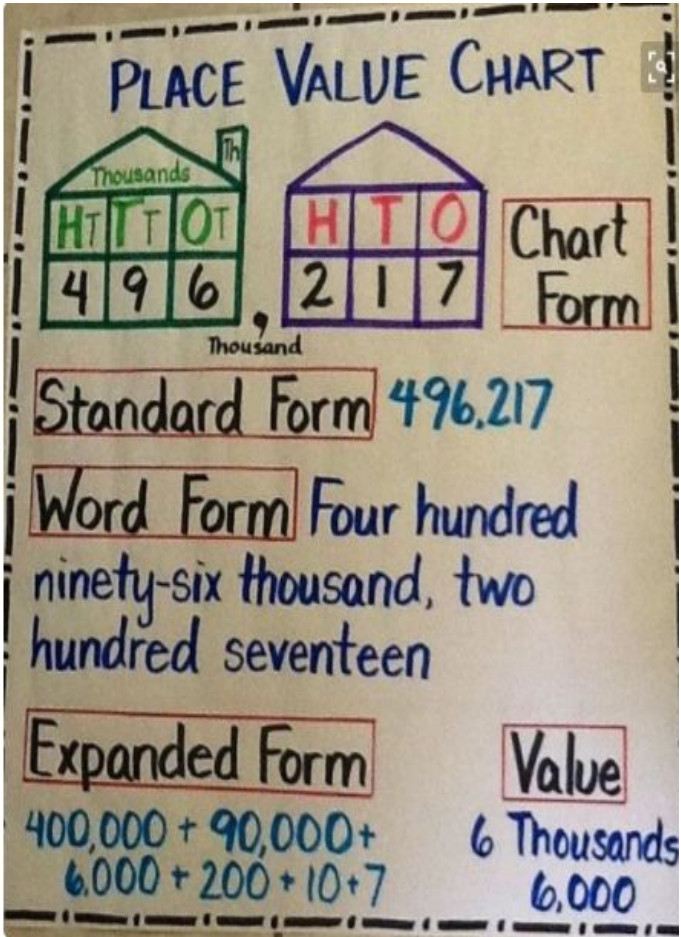 PLACE VALUE CHART
Th
Thousands
HT TT OT
H T O
4 9 6 , 2 1 7
Thousand
Chart
Form
Standard Form 496,217
Word Form Four hundred
ninety-six thousand, two
hundred seventeen
Expanded Form
400,000 + 90,000 +
6,000 + 200 + 10 + 7
Value
6 Thousands
6,000